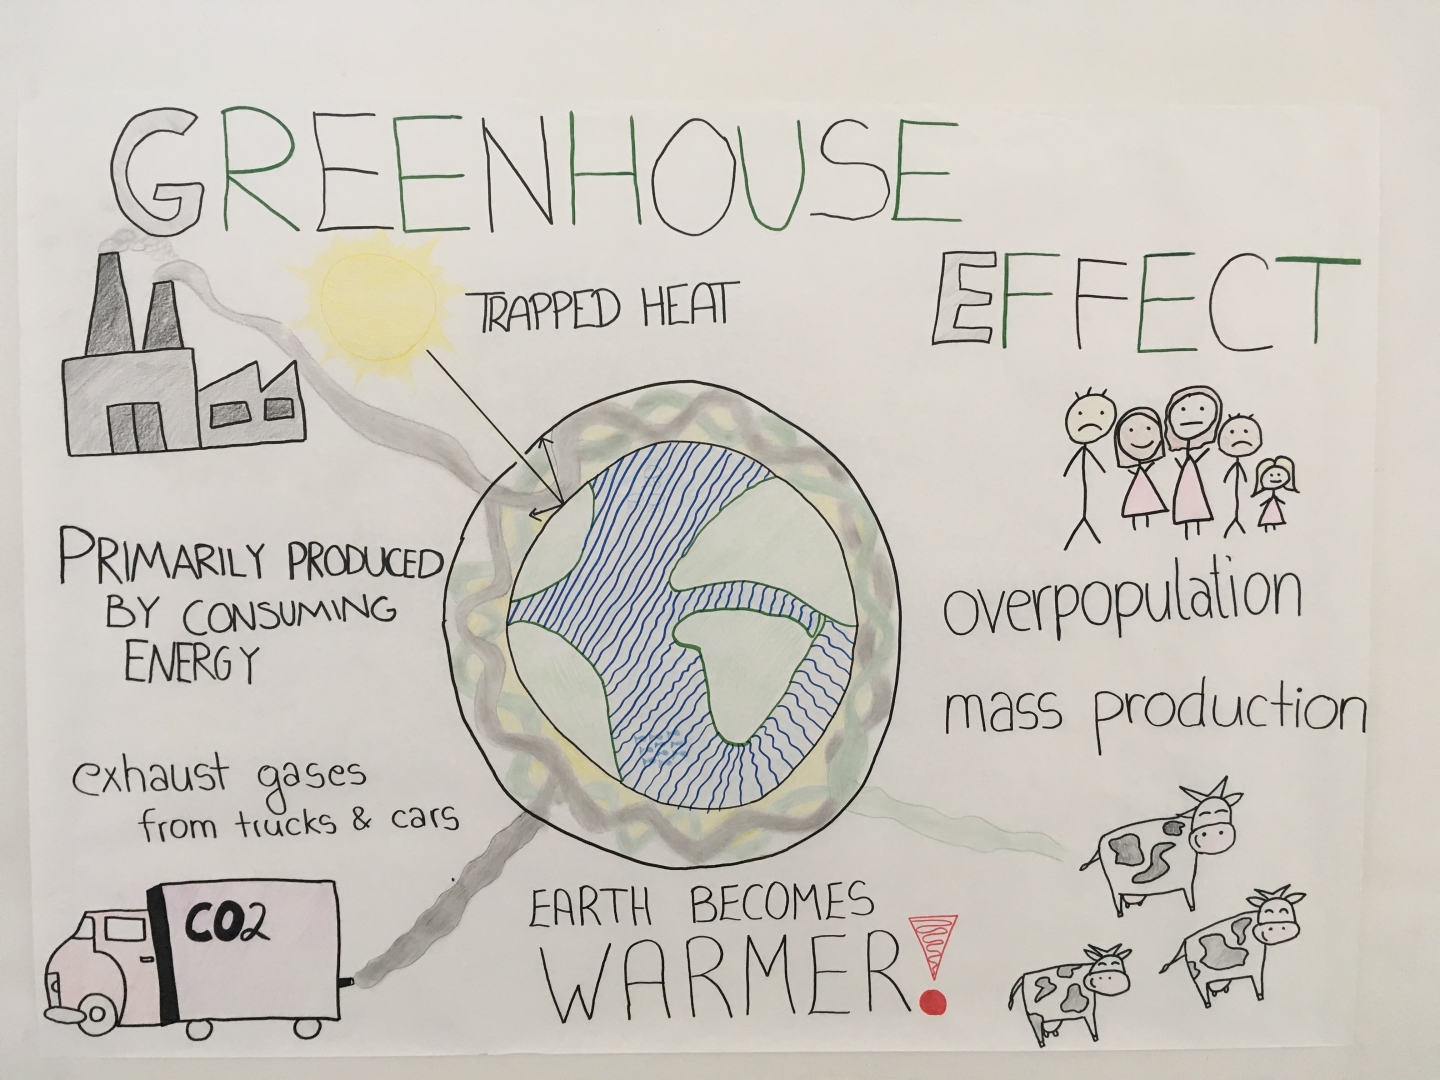 GREENHOUSE
EFFECT
TRAPPED HEAT
PRIMARILY PRODUCED
BY CONSUMING
ENERGY
overpopulation
mass production
exhaust gases
from trucks & cars
CO2
EARTH BECOMES
WARMER!